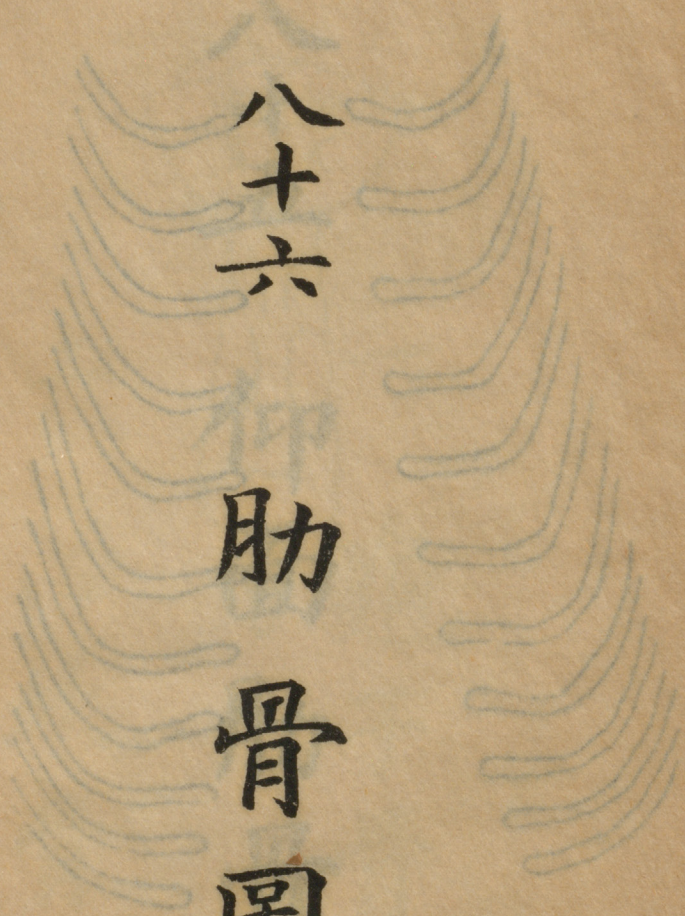 八十六
肋骨圖